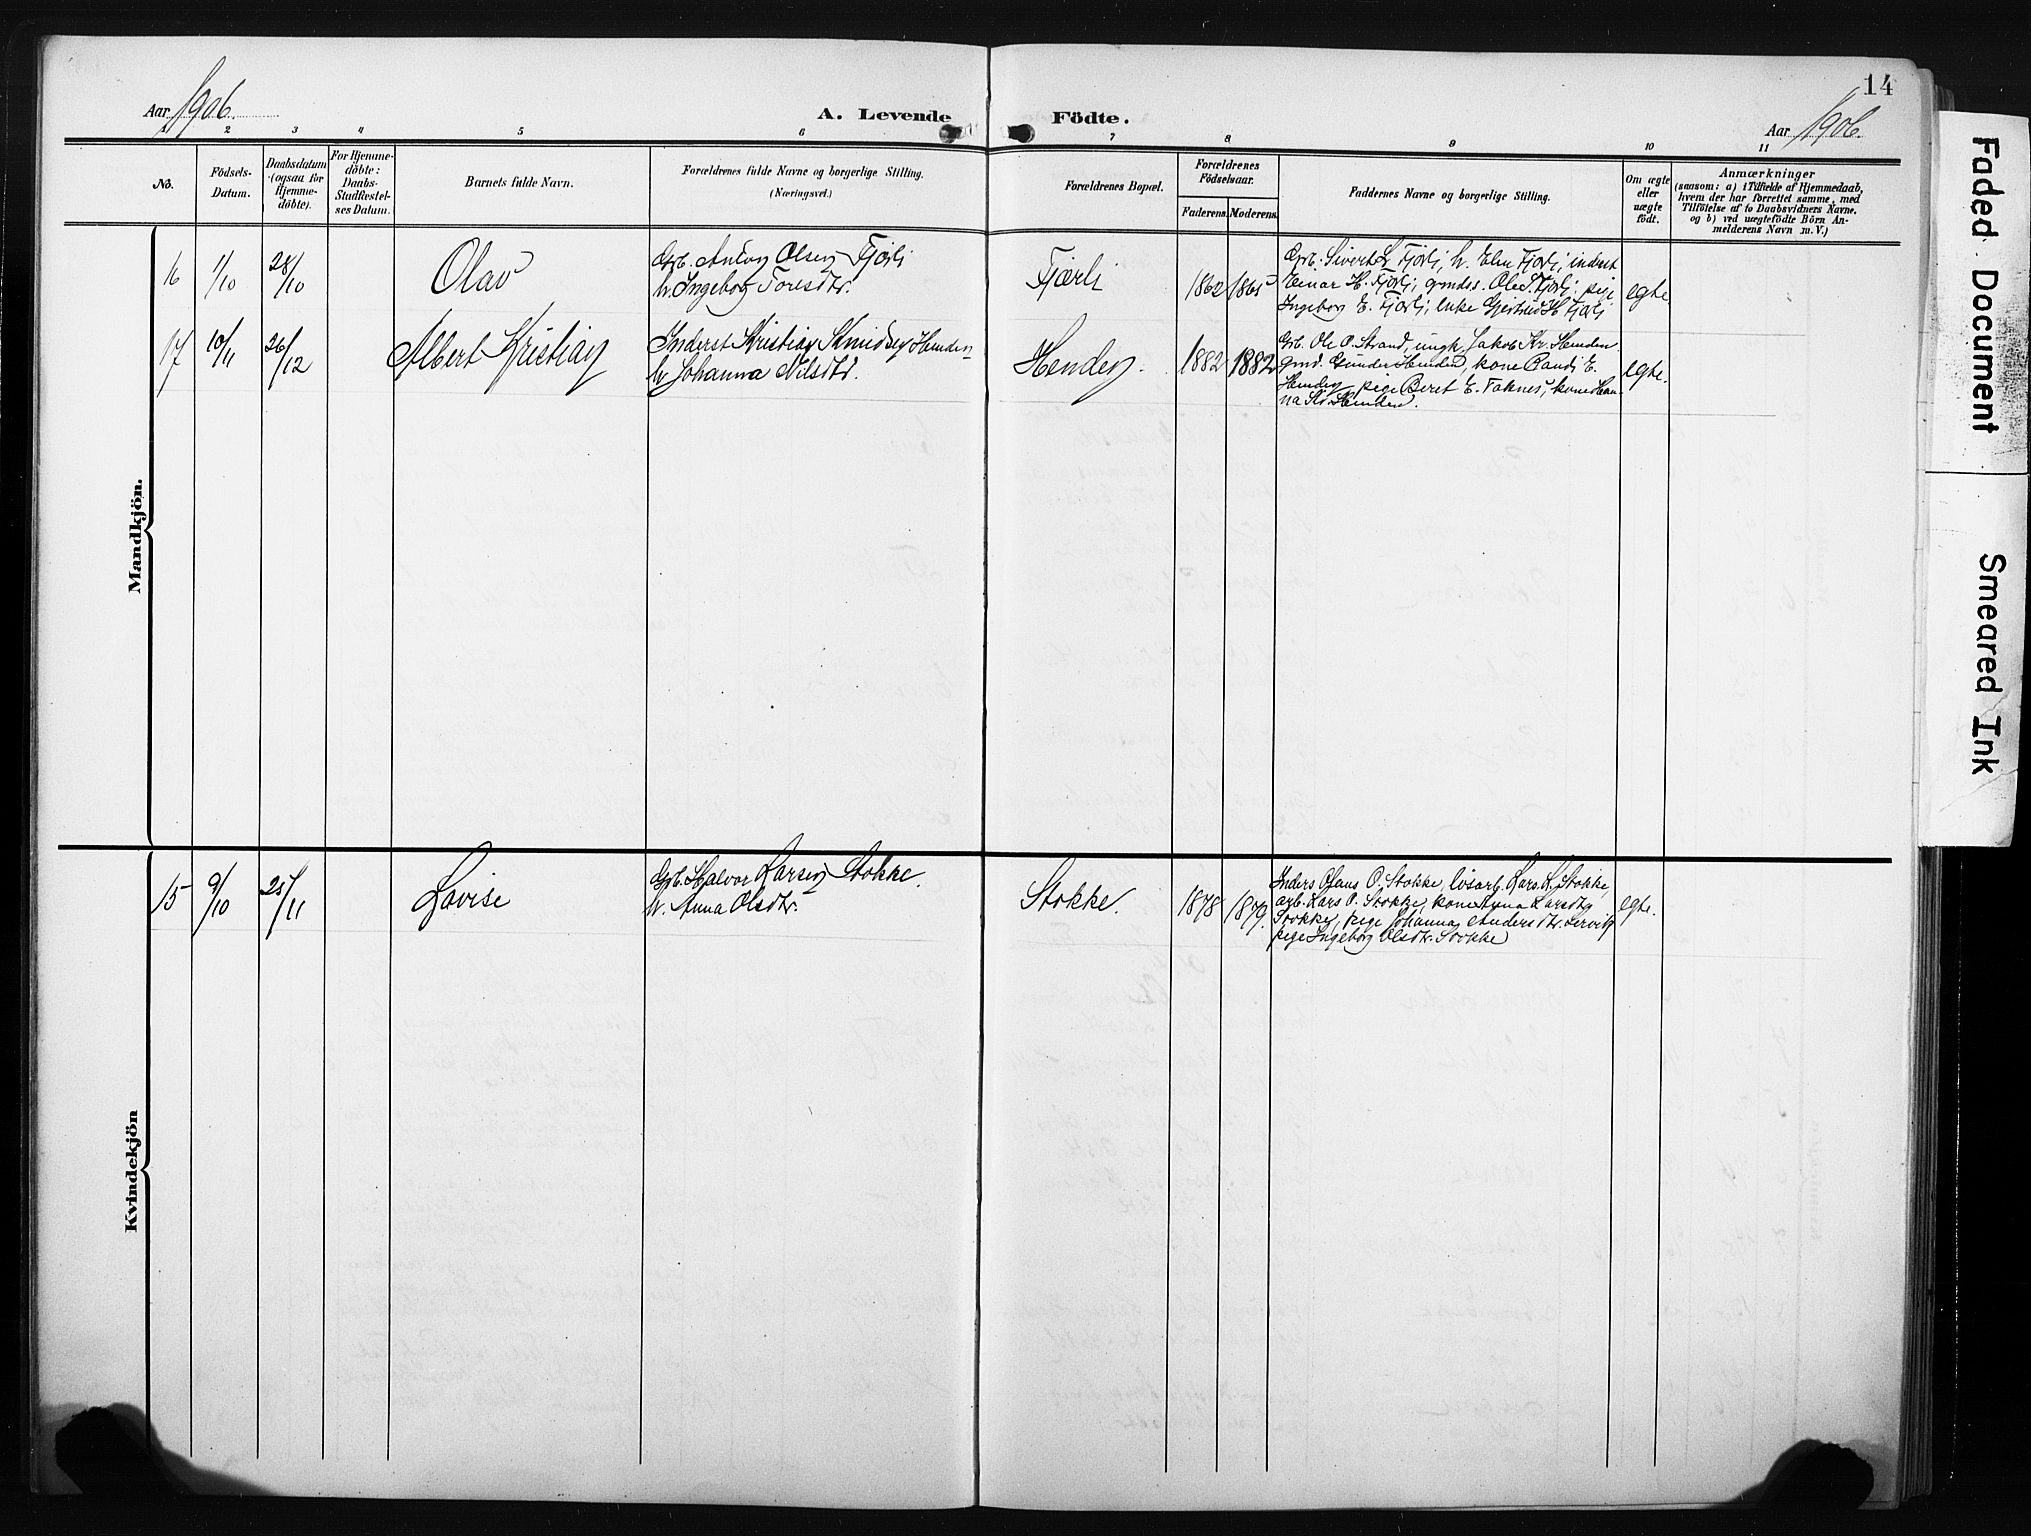 14
Aar 1906.
A. Levende Födte.
Aar 1906.
1 2 3 4 5 6 7 8 9 10 11
No.
Födsels-
Datum.
Daabsdatum
(ogsaa for
Hjemme-
döbte).
For Hjemme-
döbte:
Daabs-
Stadfæstel-
ses Datum.
Barnets fulde Navn.
Forældrenes fulde Navne og borgerlige Stilling.
(Næringsvei.)
Forældrenes Bopæl.
Forældrenes
Födselsaar.
Faderens. Moderens.
Faddernes Navne og borgerlige Stilling.
Om ægte
eller
uægte
födt.
Anmærkninger
(saasom: a) i Tilfælde af Hjemmedaab,
hvem der har forrettet samme, med
Tilföielse af to Daabsvidners Navne.
og b) ved uægtefödte Börn An-
melderens Navn m. V.)
Mandkjön.
16 1/10 28/10 Olav
Grb. Anton Olsen Fjörli
h. Ingebor Toresdtr.
Fjærli 1862 1865
Grb. Sivert L. Fjörli, h. Elen Fjörli, inderst
Einar H. Fjörli, gmds. Ole Fjörli, pige
Ingebor E. Fjörli, enke Gjertrud H Fjörli
egte
17 10/11 26/12 Albert Kristian
Inderst Kristian Knudsen Henden
h. Johanna Nilsdtr.
Henden. 1882 1882
Grb. Ole O. Strand, ungk. Jakob Kr. Henden
gmd. Gunder Henden, kone Randi E.
Henden, pige Beret E. Taknes, kone Han-
na Kr. Henden.
egte.
Kvindekjön
15 9/10 25/11 Lovise
Grb. Halvor Larsen Stokke.
h. Anna Olsdtr.
Stokke. 1878 1879.
Inders Claus O. Stokke, lösarb. Lars L. Stokke,
arb. Lars P. Stokke, kone Anna Larsdtr
Stokke, pige Johanna Andersdtr. Lervik
pige Ingebor Olsdtr. Stokke
egte.
Faded Document
Smeared Ink